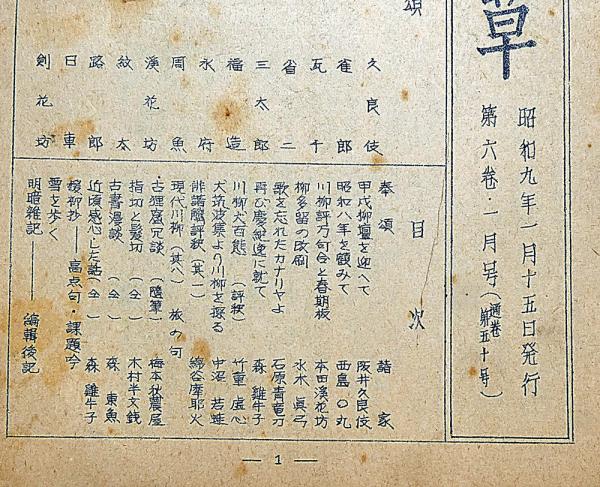 草
昭和九年一月十五日発行
第六巻・一月号(通巻第五十号)
頌
久良伎
雀郎
瓦千
省二
三太郎
福造
水府
周魚
溪花坊
紋太
路郎
日車
剣花坊
目次
奉頌 諸家
甲戌柳壇を迎へて 阪井久良伎
昭和八年を顧みて 西島〇丸
川柳評乃句会と春期板 本田溪花坊
柳多留の改刷 水木真弓
歌を忘れたカナリヤよ 石原青竜刀
再び慶紀逸に就て 森雞牛子
川柳犬百態(評釈) 竹重虚心
犬筑波集より川柳を探る 中沼若蛙
俳諧 評釈(其一) 綿谷摩耶火
現代川柳(其八) 旅の句
古狸庵冗談(随筆) 梅本秋農屋
指切と髪切(仝) 木村半文銭
古書漫談(仝) 森東魚
近頃感心した話(仝) 森雞牛子
柳抄——高点句・課題吟
雪を歩く
明暗雑記——編輯後記
— 1 —